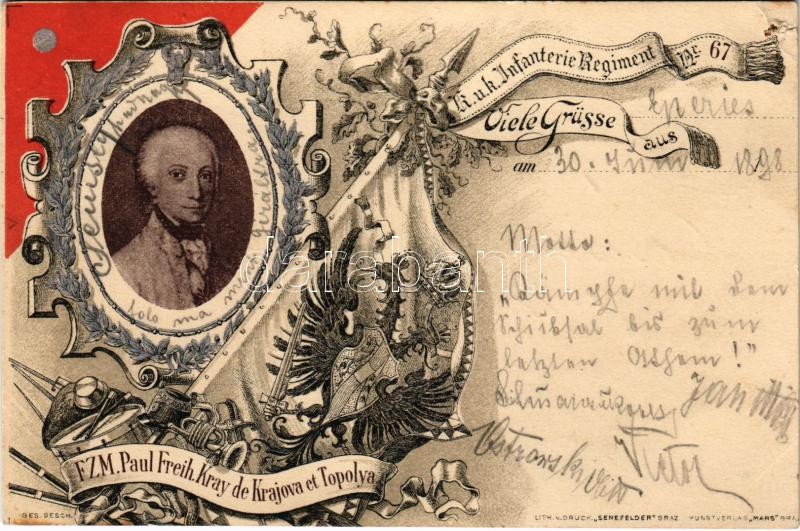 K.u.k. Infanterie Regiment Nr. 67
Viele Grüsse aus
Eperies
am 30. Juni 1898
Motto:
„Kämpfe mit dem
Schicksal bis zum
letzten Athem!"
Jan
Ostrovski
Victor
darabanth
F.Z.M. Paul Freih. Kray de Krajova et Topolya
GES. GESCH.
LITH. U. DRUCK. „SENEFELDER" GRAZ KUNSTVERLAG „MARS"